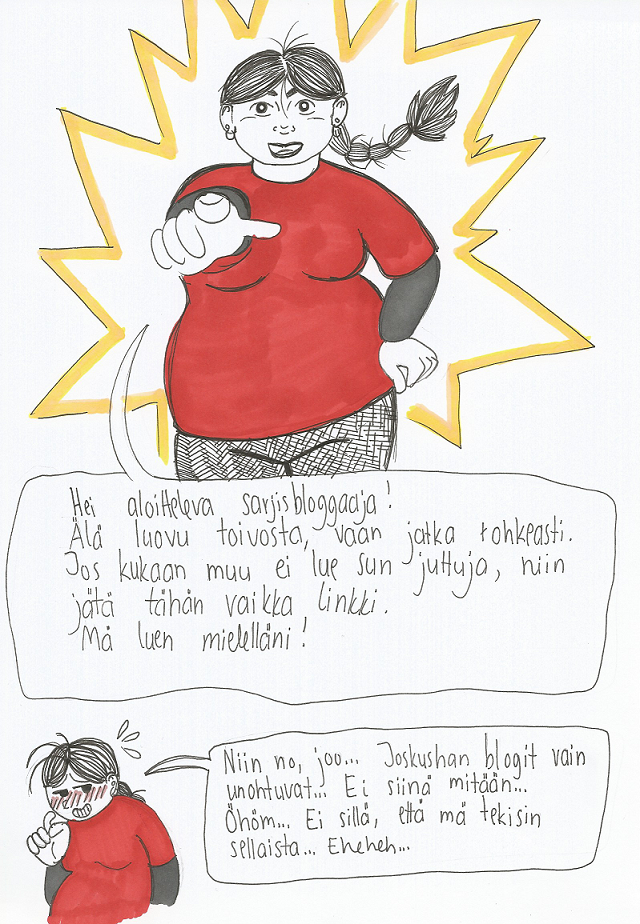 Hei aloitteleva sarjisbloggaaja!
Älä luovu toivosta, vaan jatka rohkeasti.
Jos kukaan muu ei lue sun juttuja, niin
jätä tähän vaikka linkki.
Mä luen mielelläni!
Niin no, joo... Joskushan blogit vain
unohtuvat... Ei siinä mitään...
Öhöm... Ei sillä, että mä tekisin
sellaista... Eheheh...